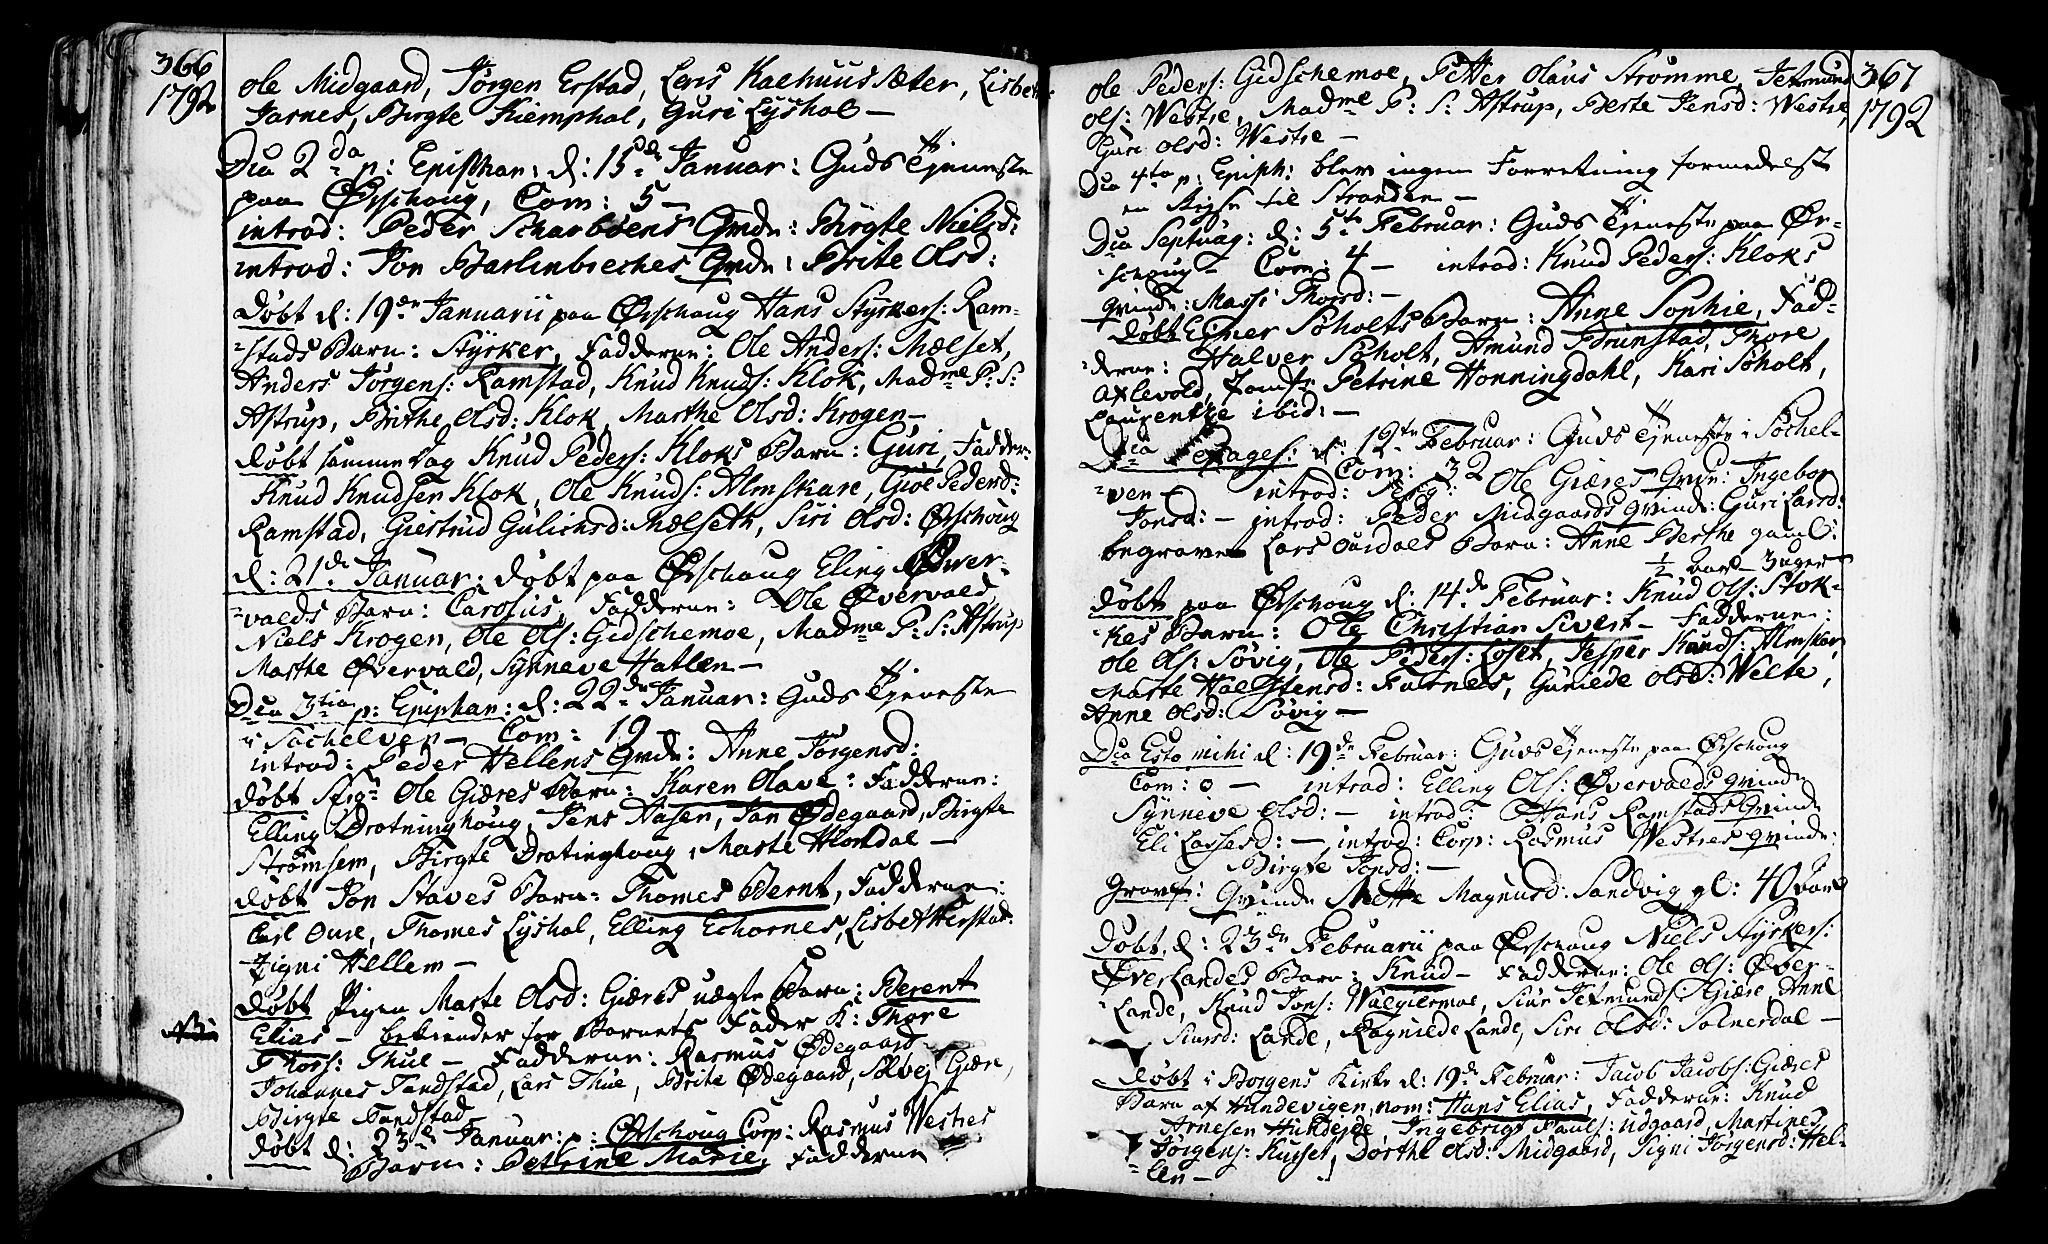 366
1792
Ole Midgaard, Jørgen Erstad, Lars Kaehuussæter, Lisbet
Jarnes, Birgte Kiemphol, Guri Lyshol –
Dia 2da p: Epiphan: d: 15de Januar: Guds Tjeneste
paa Ørschoug, Com: 5 –
introd: Peder Scharbøens Qvde: Birgte Nielsd:
introd: Jon Barlinbreches Qvde: Brite Olsd:
Døbt d: 19de Januarii paa Ørschoug Hans Styrkers: Ram-
stads Barn: Styrker, Fadderne: Ole Anders: Mælset,
Anders Jørgens: Ramstad, Knud Knuds: Klok, Madme P: S:
Astrup, Brithe Olsd: Klok, Marthe Olsd: Krogen –
Døbt samme dag Knud Peders: Kloks Barn: Guri, Fadder:
Knud Knudsen Klok, Ole Knuds: Almskare, Gioe Pedersd:
Ramstad, Giertrud Gulichsd: Mælseth, Siri Olsd: Ørschoug
d: 21de Januar: døbt paa Ørschoug Eling Øwer-
valds Barn: Carolus, Fadderne: Ole Øvervald,
Niels Krogen, Ole Ols: Gidschemoe, Madme P: S: Astrup
Marthe Øvervald, Synneve Hatlen –
Dia 3tia p: Epiphan: d: 22de Januar: Guds Tjeneste
i Søchelven – Com: 19 –
introd: Peder Hellens Qvde: Anne Jørgensd:
døbt Ole Giæres Barn: Karen Olave: Fadderne:
Elling Drotninghoug, Jens Aasen, Jan Ødegaard, Birgte
Strømsem, Birgte Drotinghoug, Marte Hiordal –
døbt Jon Staves Barn: Thomes Bernt, Fadderne:
Carl Ouse, Thomes Lyshol, Elling Echornes, Lisbet Herstad:
Signi Hellem –
Døbt Pigen Marte Olsd: Giæres uægte Barn: Berent
Elias – bekiender for Barnets Fader K: Thore
Thors: Thue – Fadderne: Rasmus Ødegaard
Johannes Tandstad, Lars Thue, Brite Ødegaard, Sølvej Giære,
Birgte Tandstad
døbt d: 23de Januar: p: Ørschoug Corp: Rasmus Westres
Barn: Petrine Marie, Fadderne
367
1792
Ole Peders: Gidschemoe, Petter Olaus Strømme, Jetmund
Ols: Westre, Madme P: S: Astrup, Berte Jensd: Westre,
Guri Olsd: Westre –
Dia 4ta p: Epiph: blev ingen Forretning formedelst
en Reise til Stranden –
Dia Septuag: d: 5te Februar: Guds Tjeneste paa Ør-
schoug – Com: 4 – introd: Knud Peders: Kloks
Qvinde: Massi Thorsd: –
døbt Einer Søholts Barn: Anne Sophie, Fad-
derne: Halver Søholt, Amund Brunstad, Thore
Axlevold, Jomfr Petrine Honningdahl, Kari Søholt,
Laurentze ibid: –
Dia Sexages: d: 12te Februar: Guds Tjeneste i Søchel-
ven – Com: 32
introd: Ole Giæres Qvde: Ingebor
Jonsd: – introd: Peder Midgaards Qvinde: Guri Larsd:
begravet Lars Ourdals Barn: Anne Berthe gaml:
½ Aar – 3 uger
døbt paa Ørschoug d: 14de Februar: Knud Ols: Stok-
kes Barn: Ole Christian Sivert – Fadderne:
Ole Ols: Søvig, Ole Peders: Loset, Jesper Knuds: Almskar,
Marte Halstensd: Farnes, Gunilde Olsd: Welte,
Anne Olsd: Søvig –
Dia Esto mihi d: 19de Februar: Guds Tjeneste paa Ørschoug
Com: 0 – introd: Elling Ols: Øvervalds Qvinde
Synneve Olsd: – introd: Hans Ramstads Qvinde
Eli Lassesd: – introd: Corp: Rasmus Westres Qvinde:
Birgte Jonsd: –
Grav: Qvinde Mette Magnusd: Sandvig gl: 40 Aar
Døbt d: 23de Februarii paa Ørschoug Niels Styrkers:
Øverlandes Barn: Knud – Fadderne: Ole Ols: Øver-
lande, Knud Jons: Walgiermoe, Siur Jetmunds: Giære, Anne
Siursd: Lande, Ragnilde Lande, Siri Olsd: Solnerdal –
døbt i Borgens Kirke d: 19de Februar: Jacob Jacobs: Giæres
Barn af Hundevigen, nom: Hans Elias, Fadderne: Knud
Arnesen Hundejde, Ingebrigt Pauls: Udgaard, Martines
Jørgens: Kusset, Dorthe Olsd: Midgaard, Signi Jørgensd: Hel-
len –